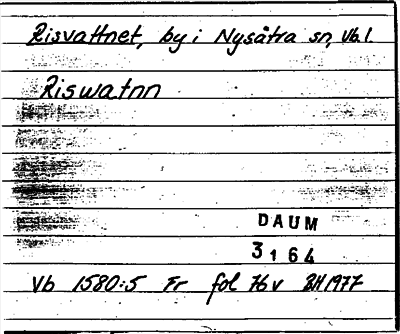 Risvattnet, by i Nysätra sn, Vb.l.
Riswatnn
DAUM
3164
Vb 1580:5 Fr fol 76v BH1977